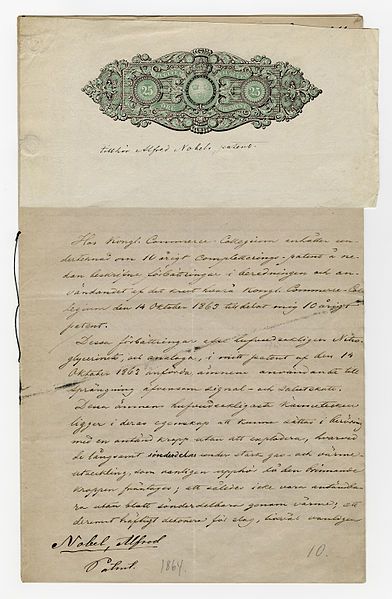 25
25
tillhör Alfred Nobels patent.
Hos Kongl. Commerce-Collegium anhåller un-
dertecknad om 10 årigt Completterings-patent å ne-
dan beskrifna förbättringar i beredningen och an-
vändandet af det krut hvarå Kongl. Commerce-Col-
legium den 14 Oktober 1863 tilldelat mig 10 årigt
patent.
Dessa förbättringar afse hufvudsakligen Nitro-
glycerinets, ell. analoga, i mitt patent af den 14
Oktober 1863 anförda ämnens användande till
sprängning äfvensom signal- och salutskott.
Dessa ämnens hufvudsakligaste kännetecken
ligger i deras egenskap att kunna sättas i beröring
med en antänd kropp utan att explodera, hvarvid
de långsamt sönderdelas under stark gas- och värme-
utveckling, som vanligen upphör då den brinnande
kroppen från ; att således icke vara antändba-
ra utan blott sönderdelbara genom värme; att
deremot häftigt detonera för slag, vanligen
Nobel, Alfred
Patent.
1864.
10.